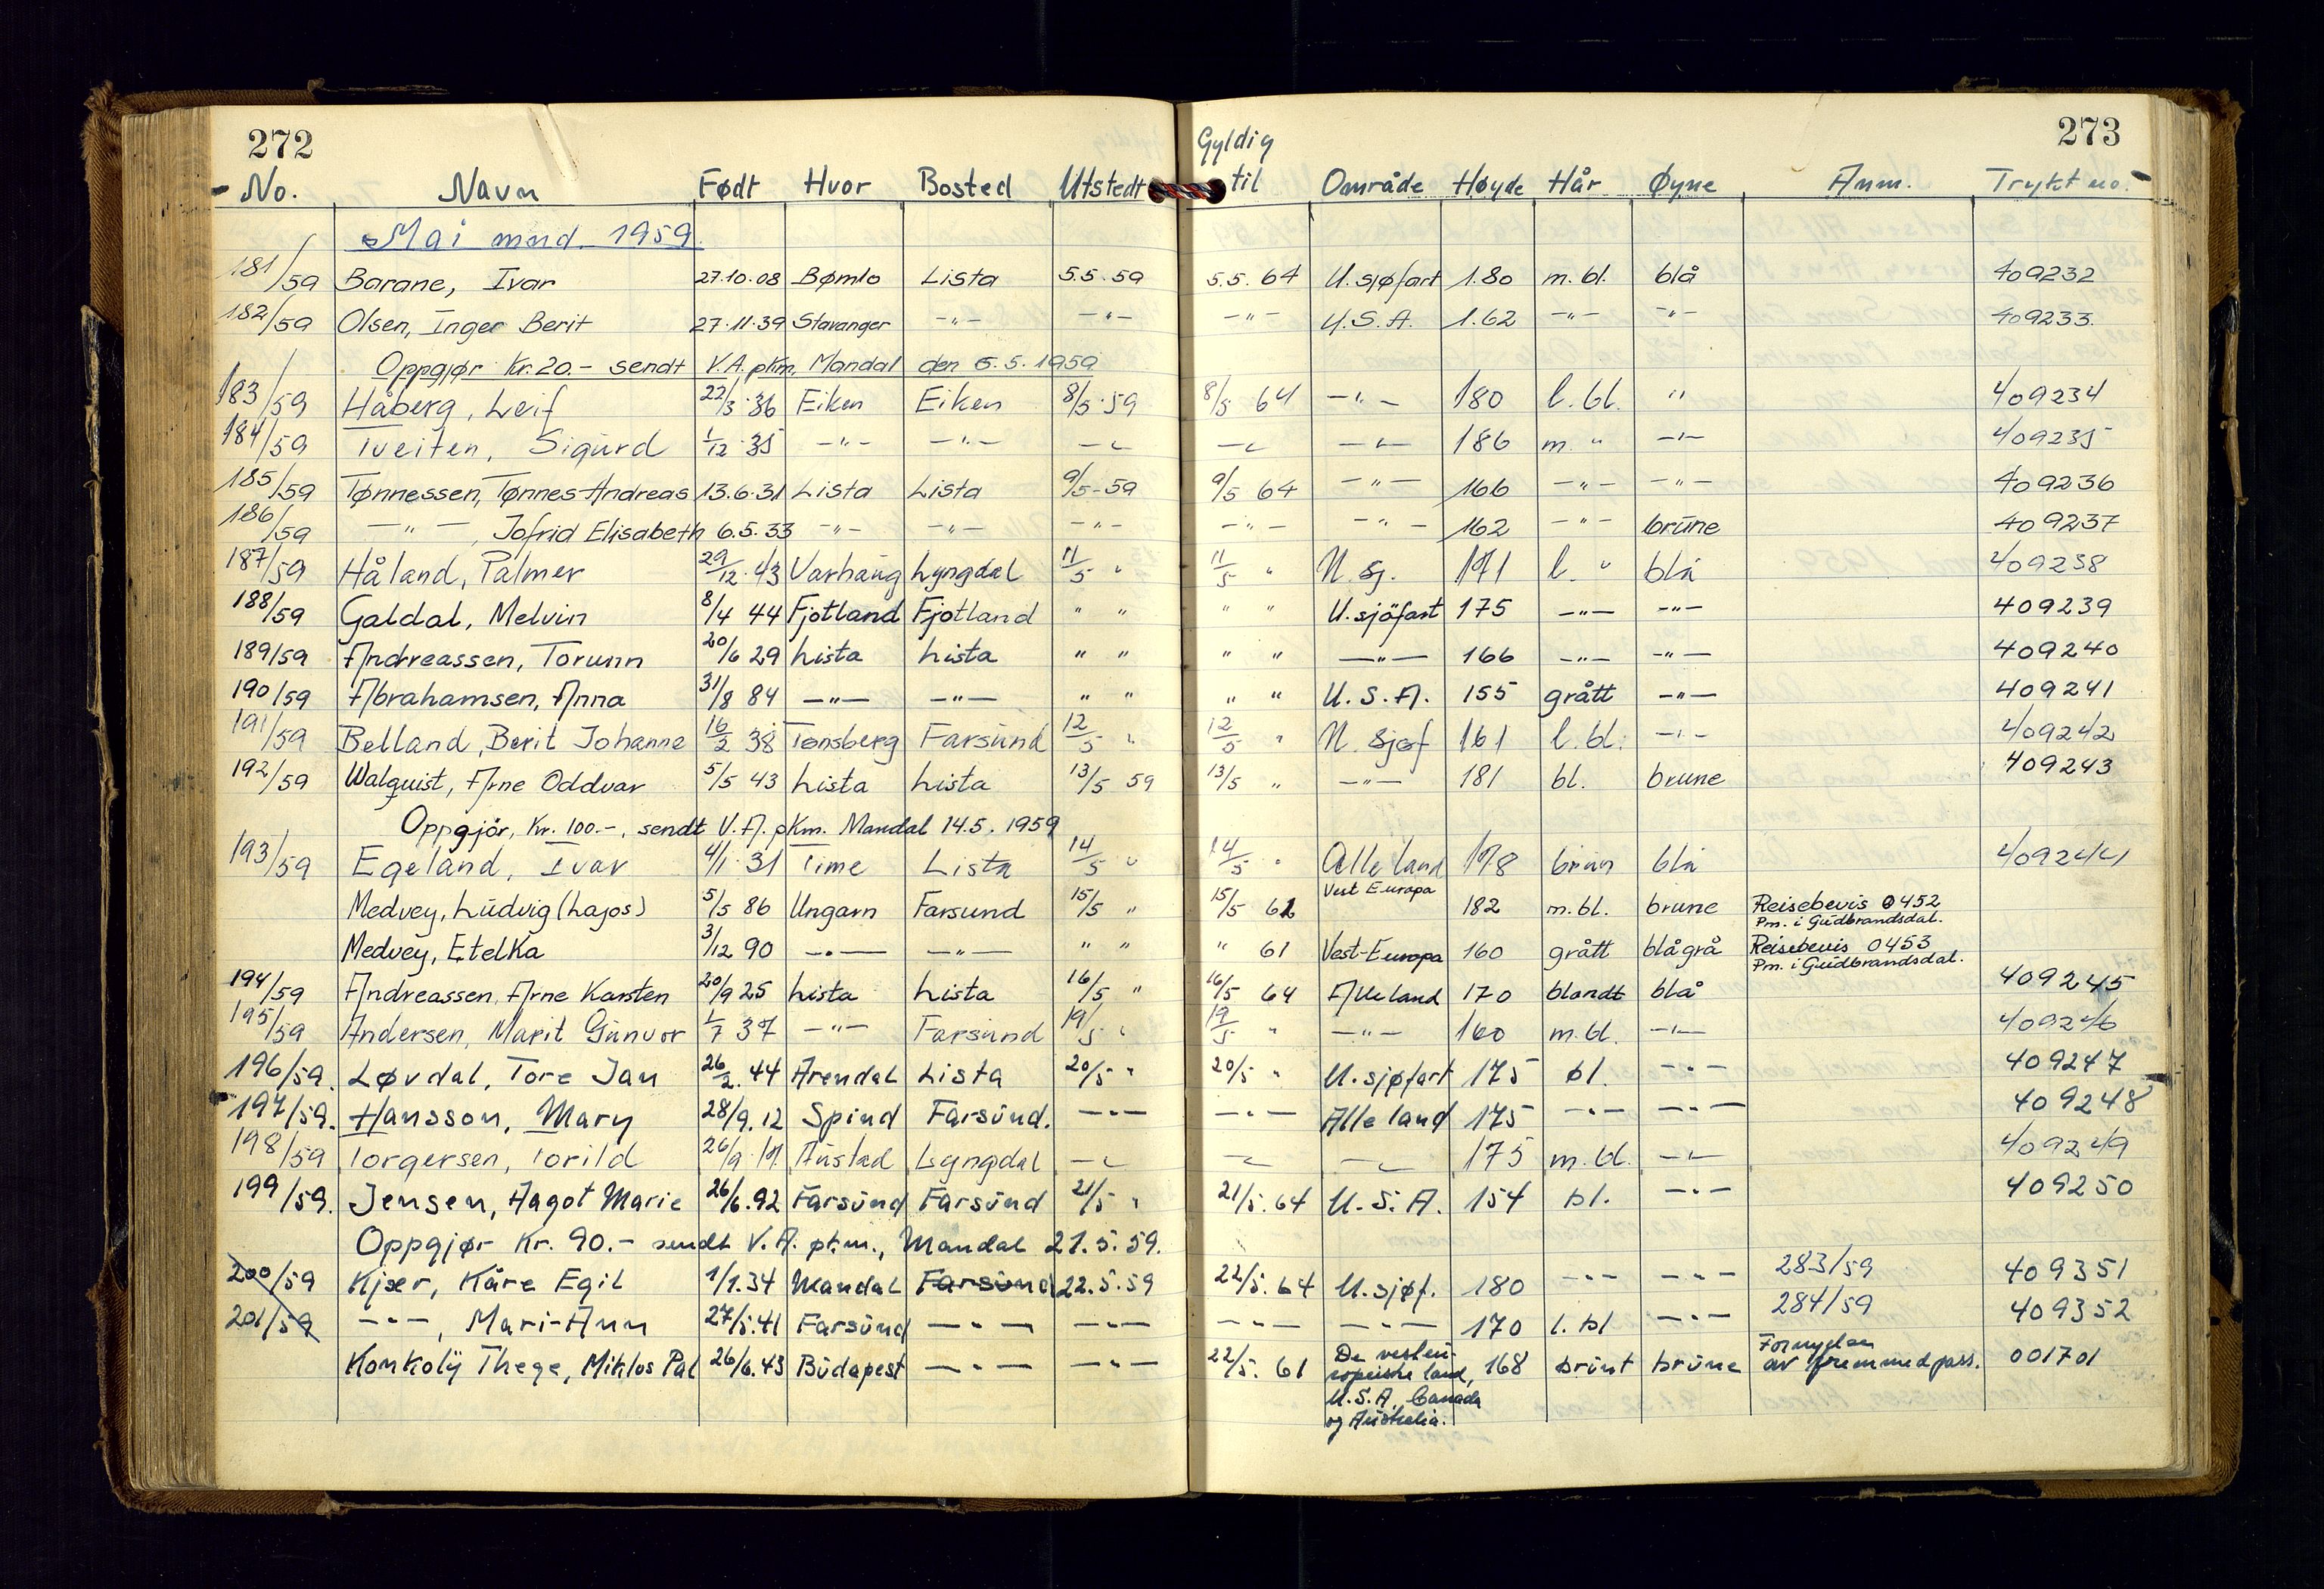 272
273
No. Navn Født Hvor Bosted Utstedt Gyldig til Område Høyde Hår Øyne Anm. Trykt no.
Mai mnd. 1959
181/59 Barane, Ivar 27.10.08 Bømlo Lista 5.5.59 5.5.64 U.sjøfart 1.80 m.bl. blå 409232
182/59 Olsen, Inger Berit 27.11.39 Stavanger -"- -"- -"- U.S.A. 1.62 -"- -"- 409233
Oppgjør Kr. 20.- sendt V.A. pkm, Mandal den 5.5.1959
183/59 Håberg, Leif 22/3.36 Eiken Eiken 8/5.59 8/5 64 -"- 180 l.bl. " 409234
184/59 Tveiten, Sigurd 1/12.35 -"- -"- -"- -"- -"- 186 m. " -"- 409235
185/59 Tønnessen, Tønnes Andreas 13.6.31 Lista Lista 9/5-59 9/5 64 -"- 166 -"- -"- 409236
186/59 -"-, Jofrid Elisabeth 6.5.33 -"- -"- -"- -"- -"- 162 -"- brune 409237
187/59 Håland, Palmer 29/12.43 Varhaug Lyngdal 11/5 " 11/5 " U.sj. 171 l. " blå 409238
188/59 Galdal, Melvin 8/4 44 Fjotland Fjotland " " " " U.sjöfart 175 -"- -"- 409239
189/59 Andreassen, Torunn 20/6 29 Lista Lista " " " " -"- 166 -"- -"- 409240
190/59 Abrahamsen, Anna 31/8 84 -"- -"- " " " " U.S.A. 155 grått -"- 409241
191/59 Belland, Berit Johanne 16/2 38 Tønsberg Farsund 12/5 " 12/5 " U.sjøf 161 l.bl. -"- 409242
192/59 Walquist, Arne Oddvar 5/5 43 Lista Lista 13/5 59 13/5 " -"- 181 bl. brune 409243
Oppgjör, Kr. 100.-, sendt V.A. pkm. Mandal 14.5.1959
193/59 Egeland, Ivar 4/1.31 Time Lista 14/5 " 14/5 " Alle land 178 brun blå 409244
Medvey, Ludvig (Lajos) 5/5 86 Ungarn Farsund 15/5 " 15/5 61 Vest Europa 182 m.bl. brune Reisebevis 0452 Pm. i Gudbrandsdal.
Medvey, Etelka 3/12 90 -"- -"- " " " 61 Vest-Europa 160 grått blågrå Reisebevis 0453 Pm. i Gudbrandsdal.
194/59 Andreassen, Arne Karsten 20/9 25 Lista Lista 16/5 " 16/5 64 Alle land 170 blondt blå 409245
195/59 Andersen, Marit Gunvor 1/7 37 -"- Farsund 19/5 " 19/5 " -"- 160 m.bl. -"- 409246
196/59. Løvdal, Tore Jan 26/2.44 Arendal Lista 20/5 " 20/5 " U.sjøfart 175 bl. -"- 409247
197/59. Hansson, Mary 28/9.12 Spind Farsund. -"- -"- Alle land 175 -"- -"- 409248
198/59 Torgersen, Torild 26/9.17. Austad Lyngdal -"- -"- -"- 175 m.bl. -"- 409249
199/59. Jensen, Aagot Marie 26/6.92 Farsund Farsund 21/5 " 21/5.64 U.S.A. 154 bl. -"- 409250
Oppgjør Kr. 90.- sendt V.A. pkm., Mandal 21.5.59.
200/59 Kjær, Kåre Egil 1/1.34 Mandal Farsund 22.5.59 22/5.64 U.sjøf. 180 -"- -"- 283/59 409351
201/59 -"-, Mari-Ann 27/5.41 Farsund -"- -"- -"- -"- 170 l.bl -"- 284/59 409352
Konkolÿ Thege, Miklos Pal 26/6.43 Budapest -"- -"- 22/5.61 De vesteuropeiske land, U.S.A, Canada og Australia. 168 brunt brune Fornyelse av fremmedpass. 001701